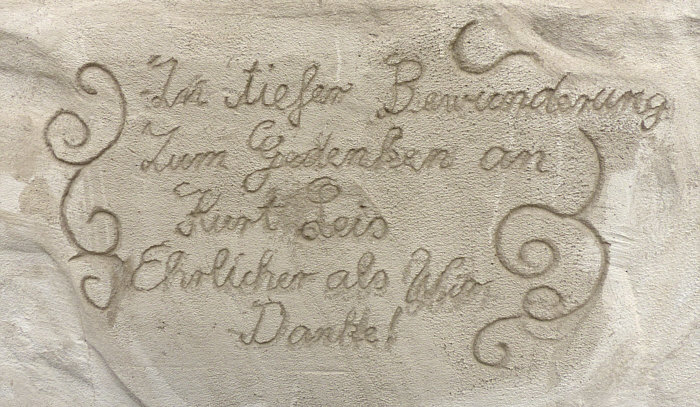 In tiefer Bewunderung
Zum Gedenken an
Kurt Leis
Ehrlicher als Wir
Danke!